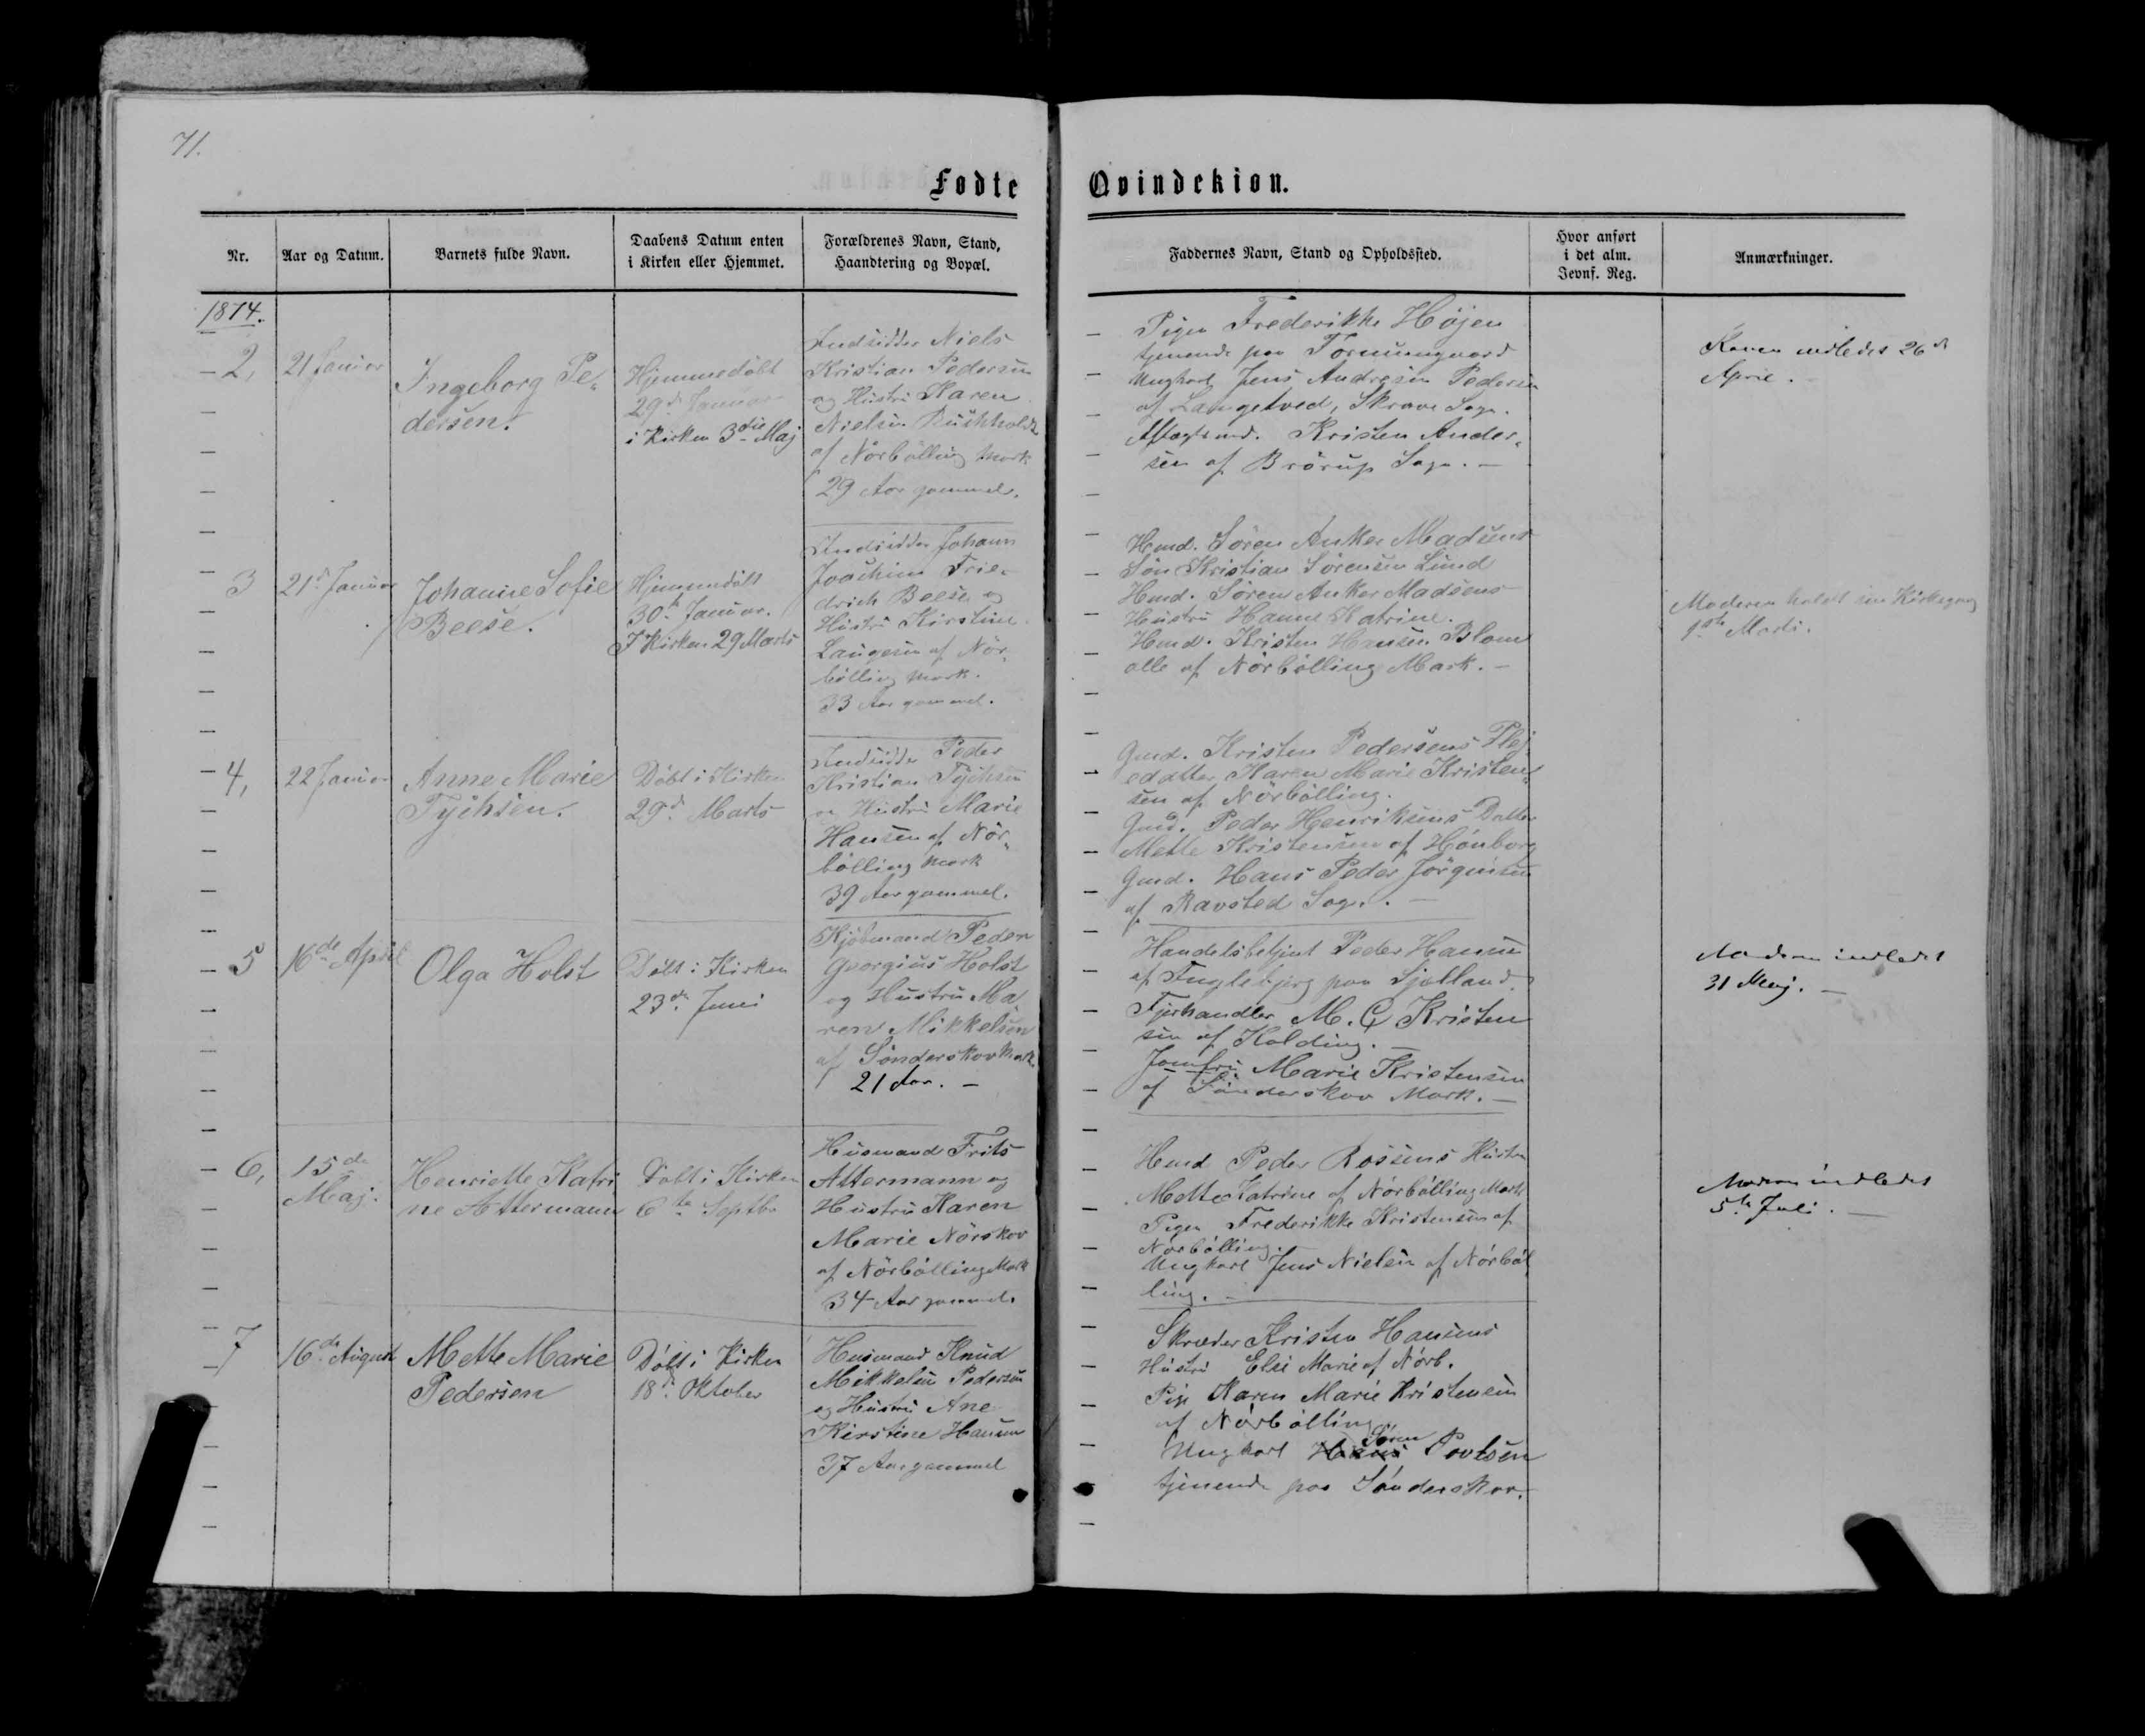 71.
Fødte Qvindekiøn.
Nr.
Aar og Datum.
Barnets fulde Navn.
Daabens Datum enten
i Kirken eller Hjemmet.
Forældrenes Navn, Stand,
Haandtering og Bopæl.
Faddernes Navn, Stand og Opholdssted.
Hvor anført
i det alm.
Jevnf. Reg.
Anmærkninger.
1874.
2,
21 Januar
Ingeborg Pe-
dersen.
Hjemmedøbt
29d Januar
i Kirken 3die Maj
Indsidder Niels
Kristian Pedersen
og Hustru Karen
Nielsen Buchholdt
af Nørbølling Mark
29 Aar gammel.
Pigen Frederikke Højen
tjenende paa Tornumgaard
Ungkarl Jens Andresen Pedersen
af Langetved, Skrave Sogn.
Aftægtsmd. Kristen Ander-
sen af Brørup Sogn. –
Konen indledet 26d
April. –
3
21d Januar
Johanne Sofie
Beese.
Hjemmedøbt
30te Januar.
I Kirken 29 Marts
Indsidder Johann
Joachim Frie-
drich Beese og
Hustru Kirstine
Laugesen af Nør-
bølling Mark.
33 Aar gammel.
Hmd. Søren Anker Madsens
Søn Kristian Sørensen Lund
Hmd. Søren Anker Madsens
Hustru Hanne Katrine.
Hmd. Kristen Hansen Blom
alle af Nørbølling Mark. –
Moderen holdt sin Kirkegang
Marts.
4,
22 Januar
Anne Marie
Tychsen.
Døbt i Kirken
29d Marts
Indsidder Peder
Kristian Tychsen
og Hustru Marie
Hansen af Nør-
bølling Mark
39 Aar gammel.
Gmd. Kristen Pedersens Plej
edatter Karen Marie Kristen-
sen af Nørbølling.
Gmd. Peder Henriksens Datter
Mette Kristensen af Hønborg
Gmd. Hans Peder Jørgensen
af Ravsted Sogn. –
5
16de April
Olga Holst
Døbt i Kirken
23de Juni
Kjøbmand Peder
Georgius Holst
og Hustru Ma
ren Mikkelsen
af Sønderskov Mark.
21 Aar. –
Handelsbetjent Peder Hansen
af Fuglebjerg paa Sjælland.
Fjerhandler M. C Kristen
sen af Kolding. –
Jomfru Marie Kristensen
af Sønderskov Mark. –
Moderen indledet
31 Maj. –
6,
15de
Maj.
Henriette Katri
ne Attermann
Døbt i Kirken
6te Septbr
Husmand Frits
Attermann og
Hustru Karen
Marie Nørskov
af Nørbølling Mark
34 Aar gammel.
Hmd Peder Rossens Hustru
Mette Katrine af Nørbølling Mark
Pigen Frederikke Kristensen af
Nørbølling.
Ungkarl Jens Nielsen af Nørbøl
ling. –
Moderen indledet
5te Juli. –
7
16de August
Mette Marie
Pedersen
Døbt i Kirken
18d Oktober
Husmand Knud
Mikkelsen Pedersen
og Hustru Ane
Kirstine Hansen
37 Aar gammel
Skræder Kristen Hansens
Hustru Else Marie af Nørb.
Pige Karen Marie Kristensen
af Nørbølling
Søren
Ungkarl Hans Povlsen
tjenende paa Sønderskov.